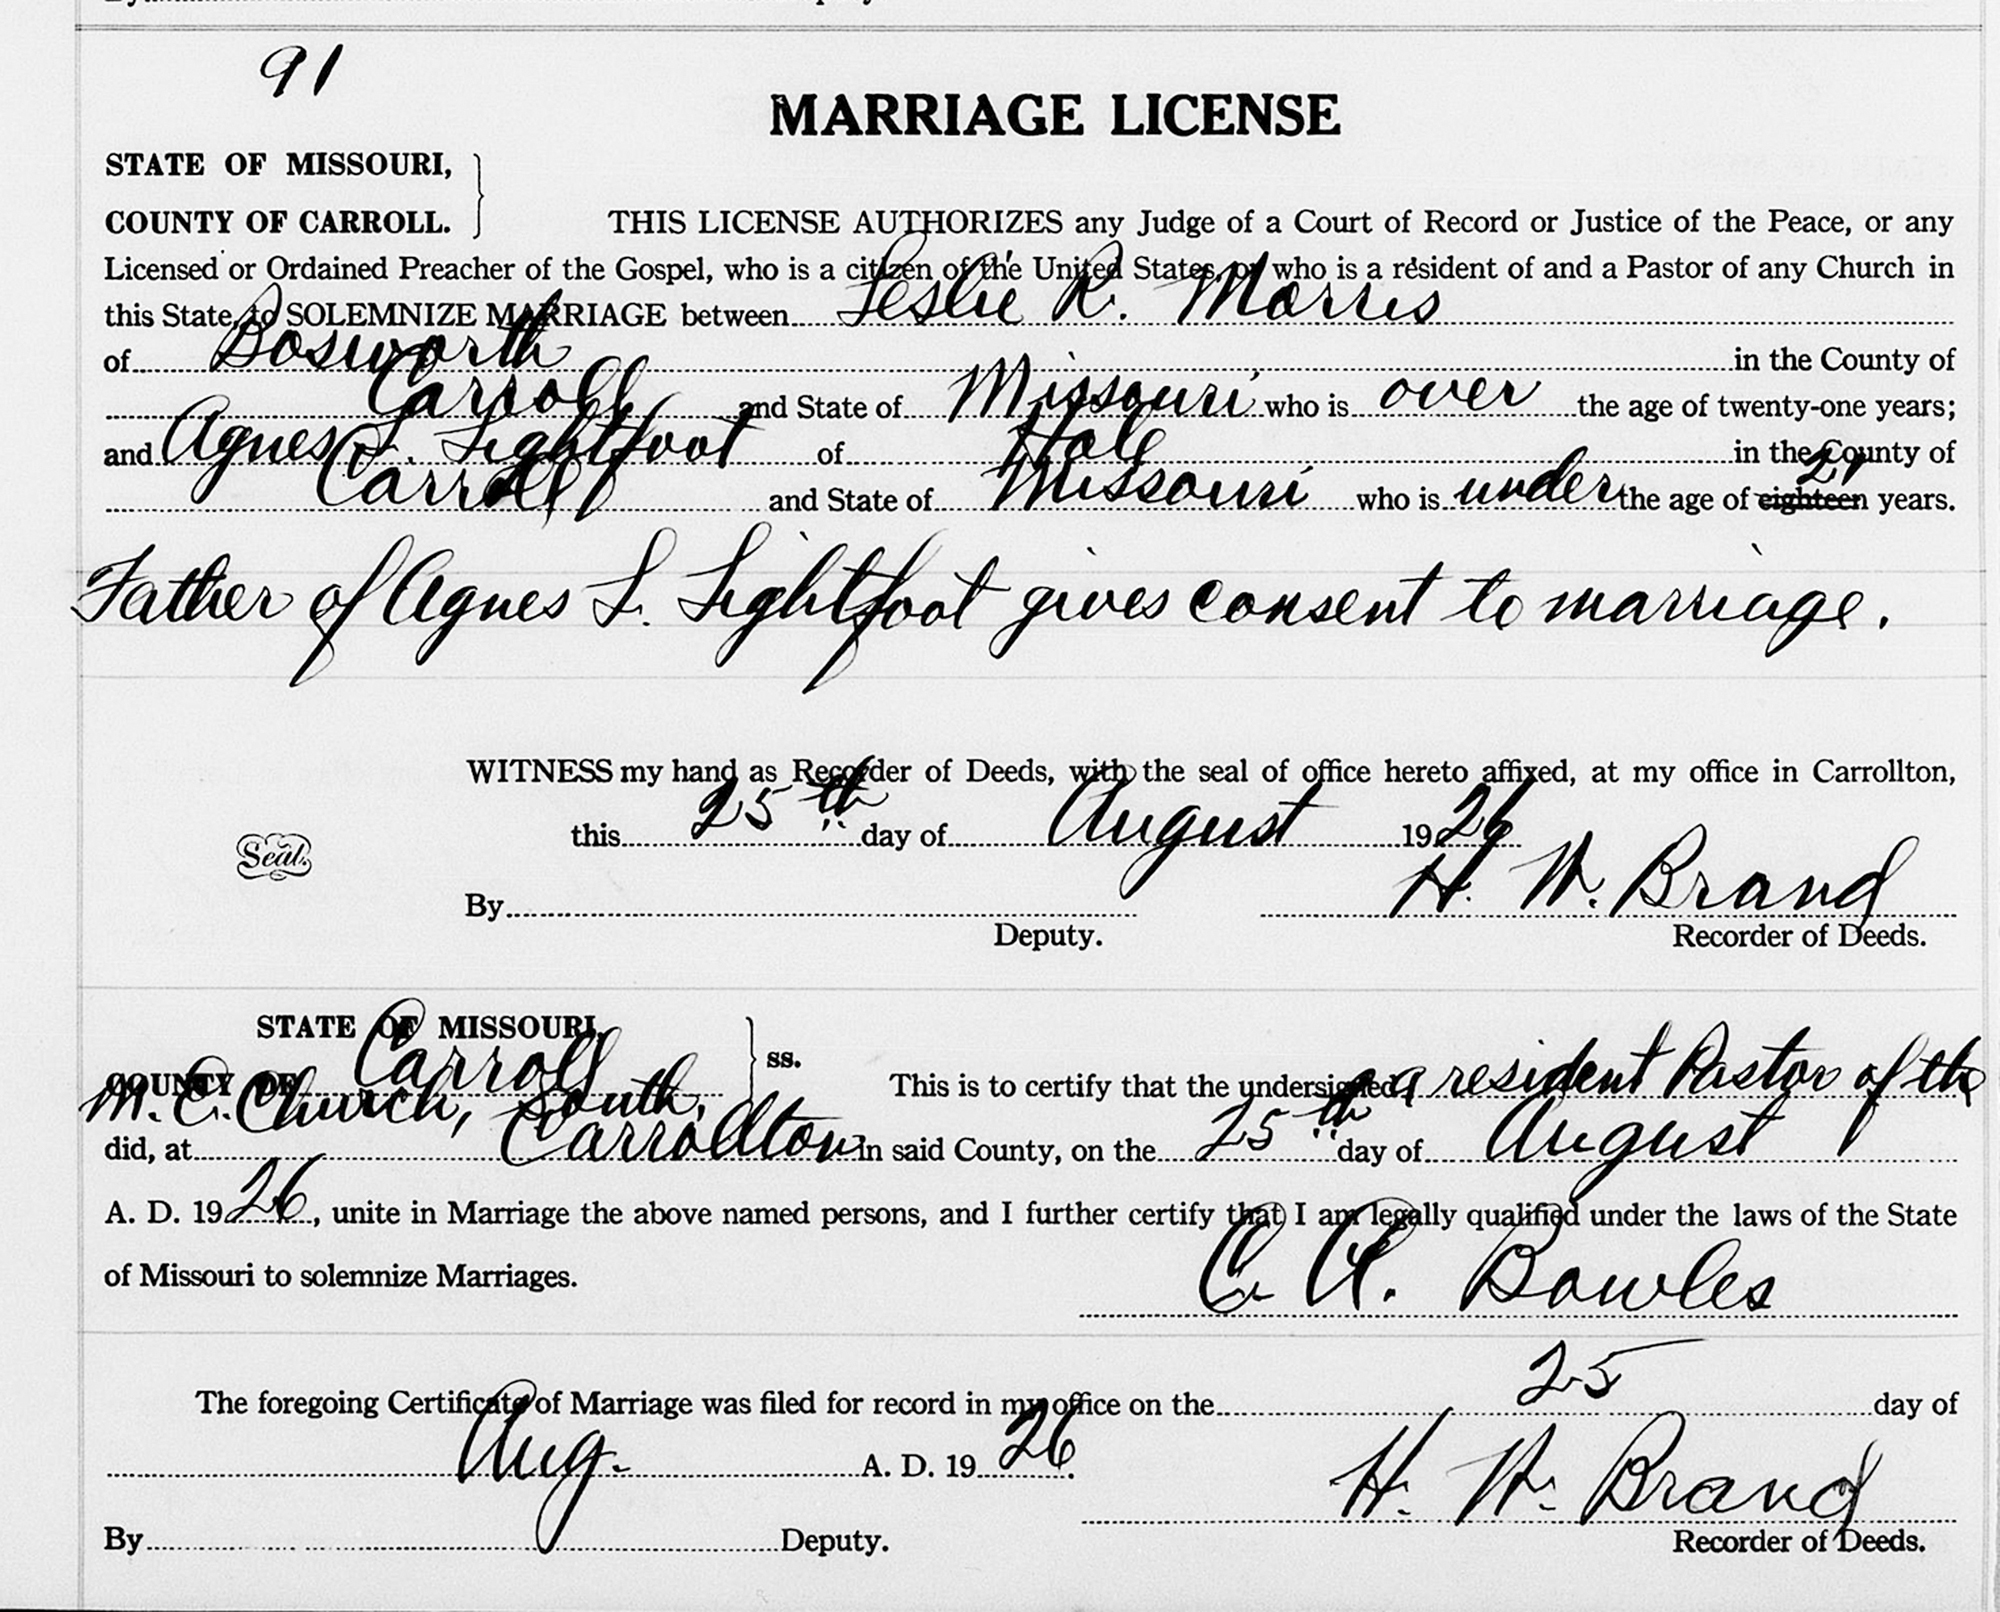 91
MARRIAGE LICENSE
STATE OF MISSOURI,
COUNTY OF CARROLL.
THIS LICENSE AUTHORIZES any Judge of a Court of Record or Justice of the Peace, or any
Licensed or Ordained Preacher of the Gospel, who is a citizen of the United States, or who is a resident of and a Pastor of any Church in
this State, to SOLEMNIZE MARRIAGE between Leslie R. Morris
of Bosworth in the County of
Carroll and State of Missouri who is over the age of twenty-one years;
and Agnes L. Lightfoot of Hale in the County of
Carroll and State of Missouri who is under the age of eighteen 21 years.
Father of Agnes L. Lightfoot gives consent to marriage.
WITNESS my hand as Recorder of Deeds, with the seal of office hereto affixed, at my office in Carrollton,
this 25th day of August 1926
Seal.
H. W. Brand
By Deputy. Recorder of Deeds.
STATE OF MISSOURI,
COUNTY OF Carroll ss. This is to certify that the undersigned, a resident Pastor of the
M. E. Church, South,
did, at Carrollton in said County, on the 25th day of August
A. D. 1926, unite in Marriage the above named persons, and I further certify that I am legally qualified under the laws of the State
of Missouri to solemnize Marriages.
C. A. Bowles
The foregoing Certificate of Marriage was filed for record in my office on the 25 day of
Aug. A. D. 1926.
H. W. Brand
By Deputy. Recorder of Deeds.